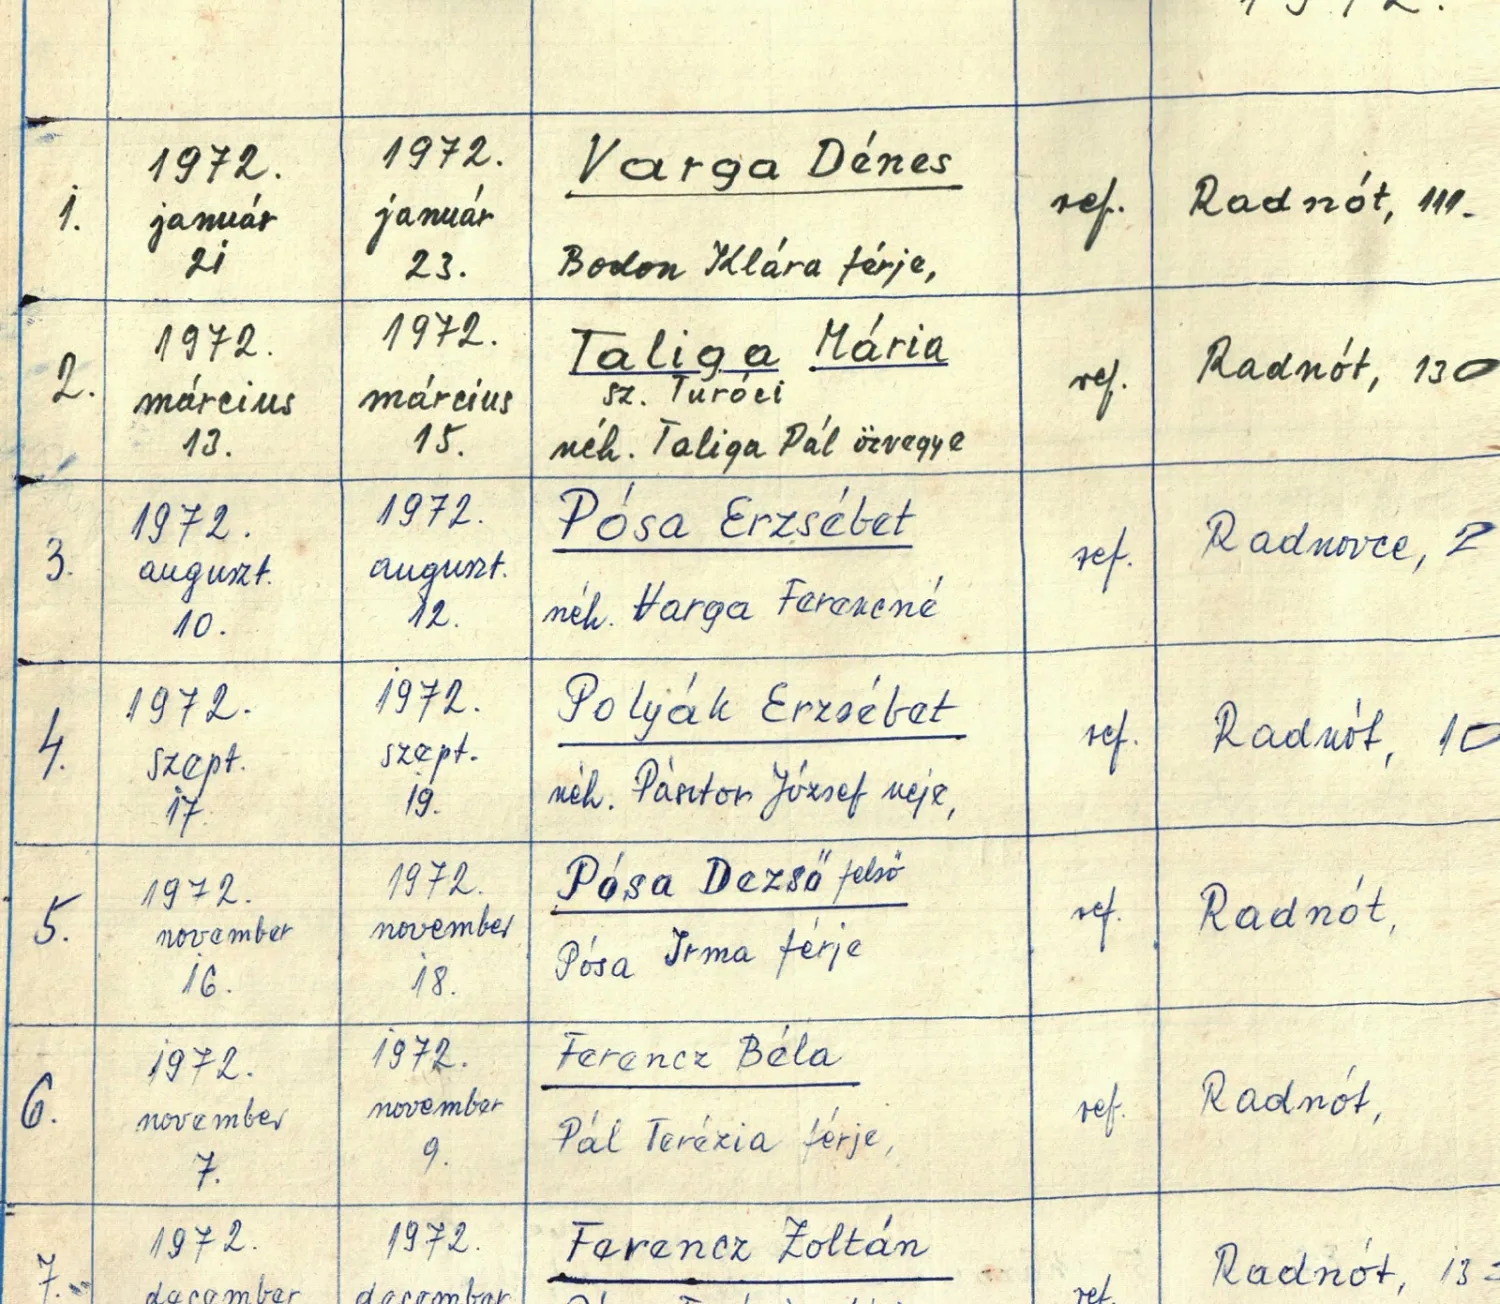 1972.
1.
1972. január 21
1972. január 23.
Varga Dénes
Bodon Klára férje,
ref.
Radnót, 111.
2.
1972. március 13.
1972. március 15.
Taliga Mária
sz. Turóci
néh. Taliga Pál özvegye
ref.
Radnót, 130
3.
1972. auguszt. 10.
1972. auguszt. 12.
Pósa Erzsébet
néh. Varga Ferencné
ref.
Radnovce, 2
4.
1972. szept. 17.
1972. szept. 19.
Polyák Erzsébet
néh. Pásztor József neje,
ref.
Radnót, 10
5.
1972. november 16.
1972. november 18.
Pósa Dezső felső
Pósa Irma férje
ref.
Radnót,
6.
1972. november 7.
1972. november 9.
Ferencz Béla
Pál Terézia férje,
ref.
Radnót,
7.
1972. december
1972. december
Ferencz Zoltán
ref.
Radnót, 13